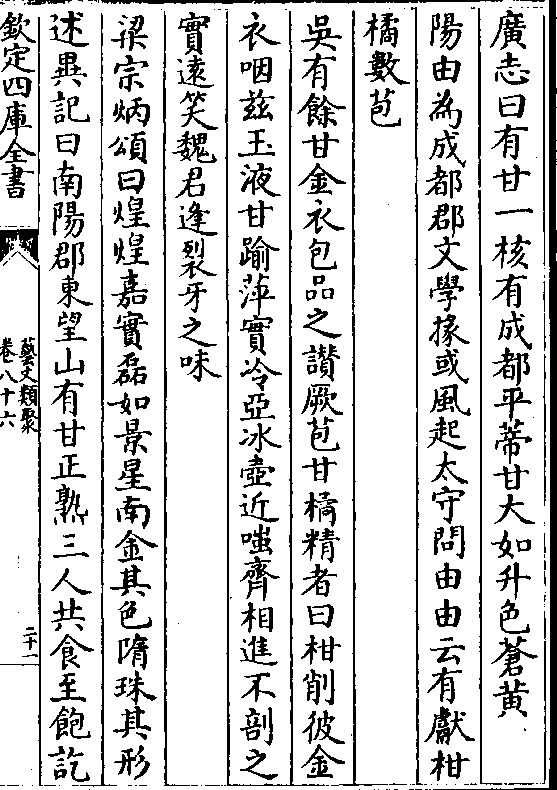 廣志曰有甘一核有成都平蒂甘大如升色蒼黄
陽由為成都郡文學掾或風起太守問由由云有獻柑
橘數苞
吳有餘甘金衣包品之讃厥苞甘橘精者曰柑削彼金
衣咽兹玉液甘踰萍實冷亞冰壺近嗤齊相進不剖之
實遠笑魏君逢裂牙之味
梁宗炳頌曰煌煌嘉實磊如景星南金其色隋珠其形
述異記曰南陽郡東望山有甘正熟三人共食至飽訖
欽定四庫全書
藝文類聚
卷八十六
二十一